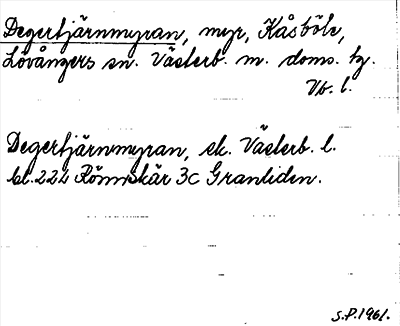 Degertjärnmyran, myr, Kåsböle,
Lövångers sn. Västerb. m. doms. tg.
Vb. l.
Degertjärnmyran, ek. Västerb. l.
bl. 224 Rönnskär 3c Granliden.
S.P. 1961.